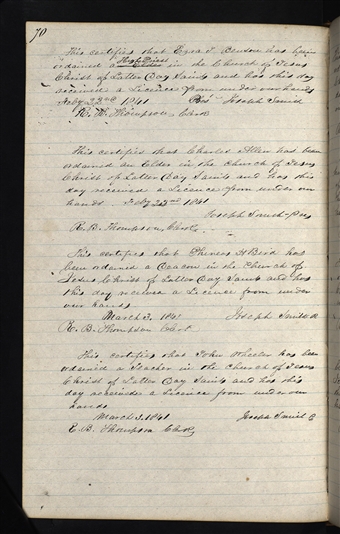 70
This certifies that Ezra T. Benson has been
High Priest
ordained a Elder in the Church of Jesus
Christ of Latter Day Saints and has this day
received a Licence from under our hands
Feby 22nd 1841 Joseph Smith
R. B. Thompson, Clerk
This certifies that Charles Allen has been
ordained an Elder in the Church of Jesus
Christ of Latter Day Saints and has this
day received a Licence from under our
hands. Feby 22nd 1841
Joseph Smith Pres
R. B. Thompson, Clerk
This certifies that Phineas H Bird has
been ordained a Deacon in the Church of
Jesus Christ of Latter Day Saints and has
this day received a Licence from under
our hands
March 3. 1841 Joseph Smith
R. B. Thompson Clerk
This certifies that John Wheeler has been
ordained a Teacher in the Church of Jesus
Christ of Latter Day Saints and has this
day received a Licence from under our
hands
March 3. 1841 Joseph Smith
R. B. Thompson Clerk